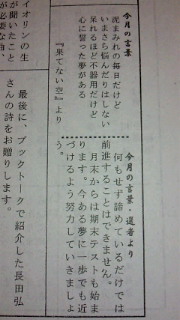 今月の言葉
泥まみれの毎日だけど
いまさら悩んだりはしない
呆れるほど不器用だけど
心に誓った夢がある
『果てない空』より
今月の言葉・選者より
何もせず諦めているだけでは
前進することはできません。
月末からは期末テストも始ま
ります。今ある夢に一歩でも近
づけるよう努力していきましょ
う。
イオリンの生
が聞いたこと
最後に、ブックトークで紹介した長田弘
さんの詩をお贈りします。